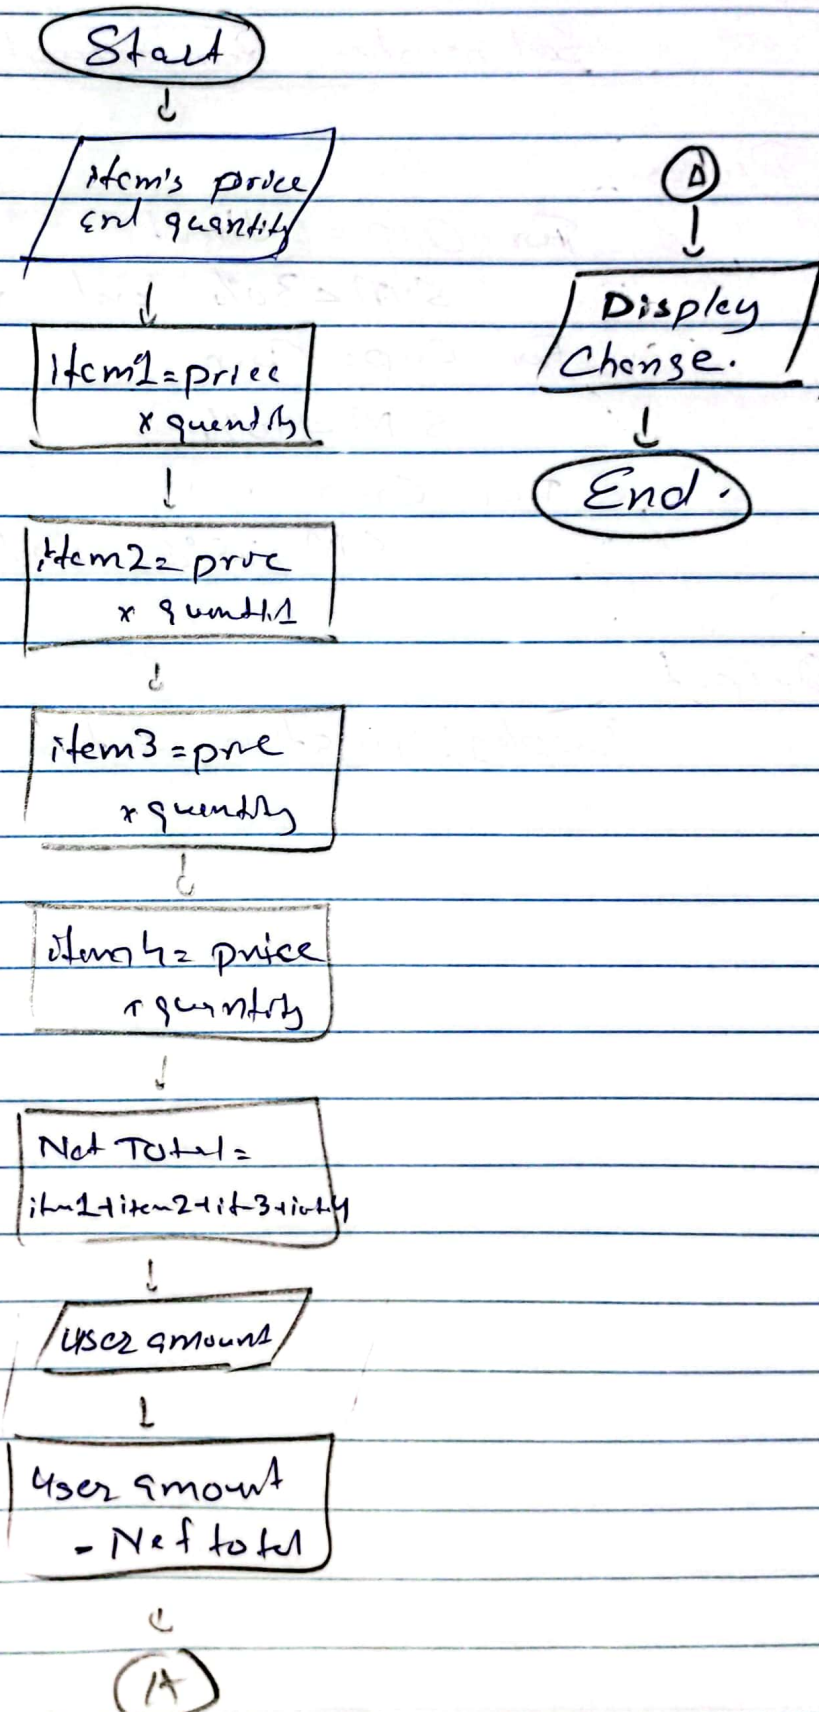 Start
item's price
and quantity
item1=price
x quantity
item2= price
x quantity
item3=price
x quantity
item4= price
x quantity
Net Total=
item1+item2+it-3+item4
user amount
user amount
- Net total
A
A
Display
Change.
End.